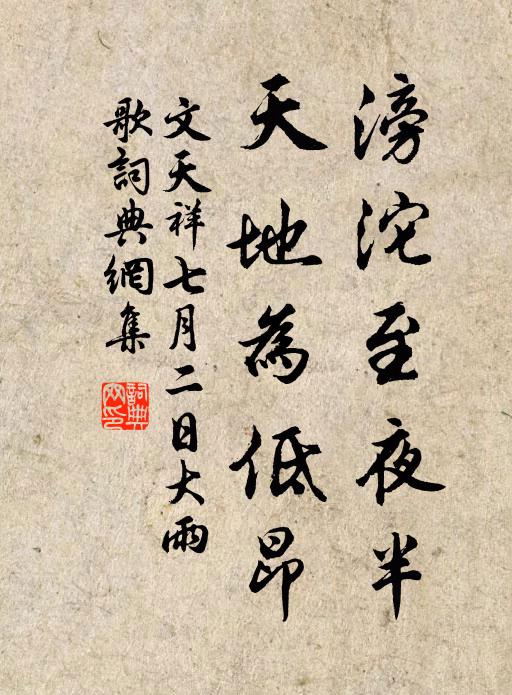 滂沱至夜半
天地為低昂
文天祥七月二日大雨
歌詞典網集
詞典
网印